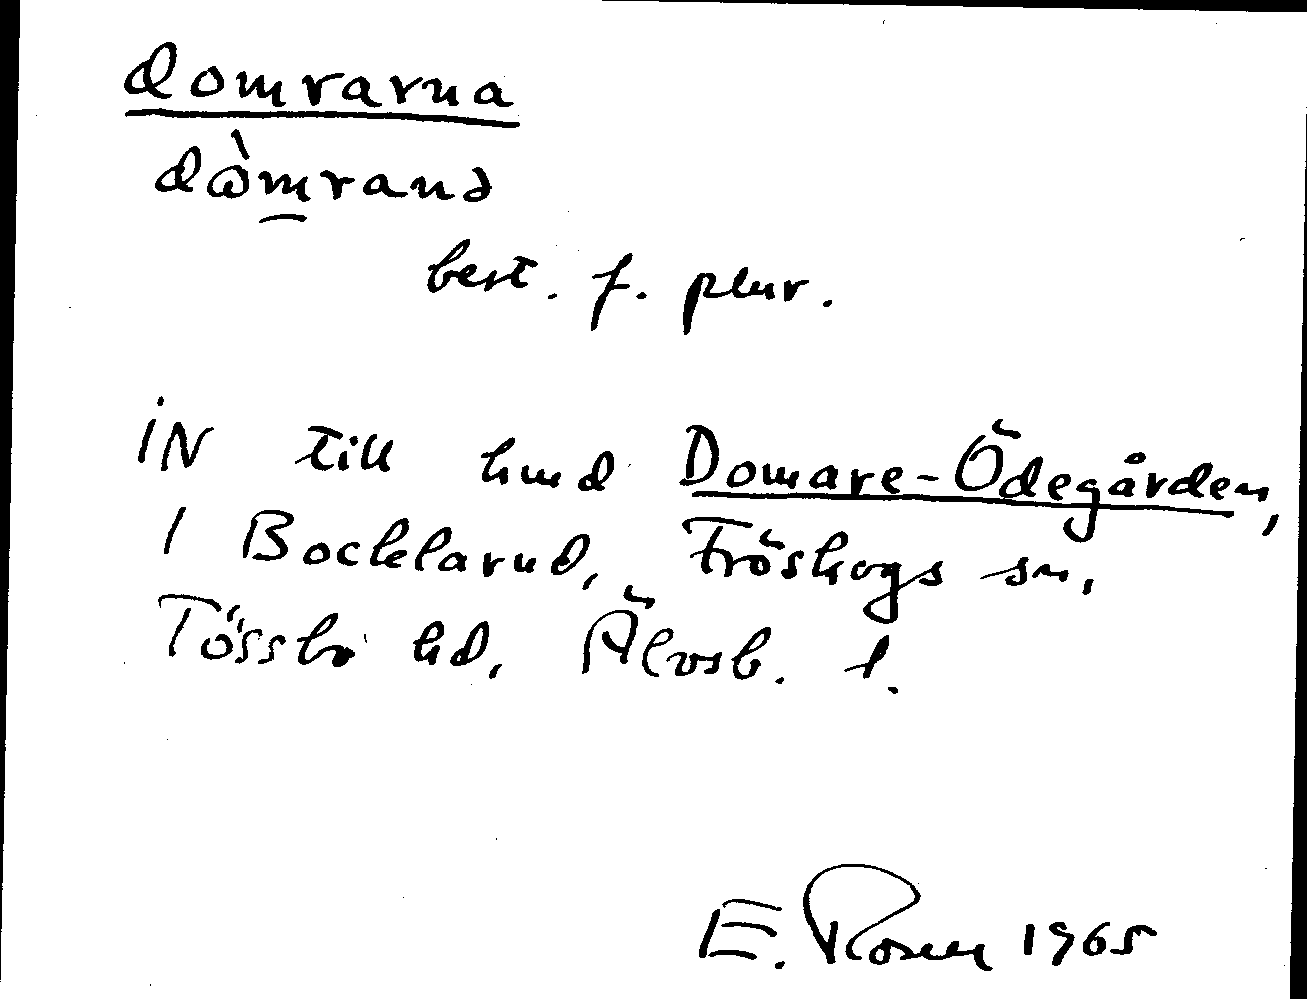 domrarna
dὼm̲ranə
best. f. plur.
IN till hmd Domare-Ödegården,
1 Bocklarud, Fröskogs sn,
Tössbo hd, Älvsb. l.
E. Rosen 1965